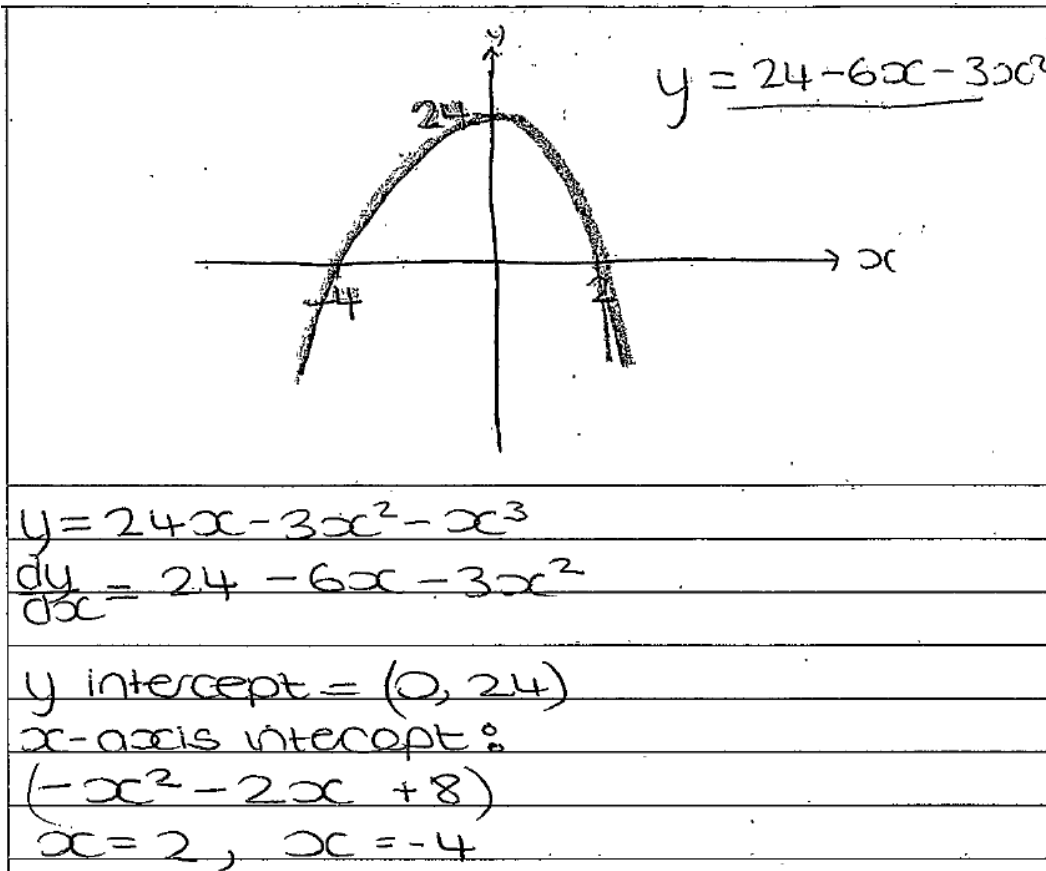 y
y = 24-6x-3x²
24
x
-4
2
y = 24x - 3x² - x³
dy/dx = 24 - 6x - 3x²
y intercept = (0, 24)
x-axis intecept:
(-x² - 2x + 8)
x = 2, x = -4